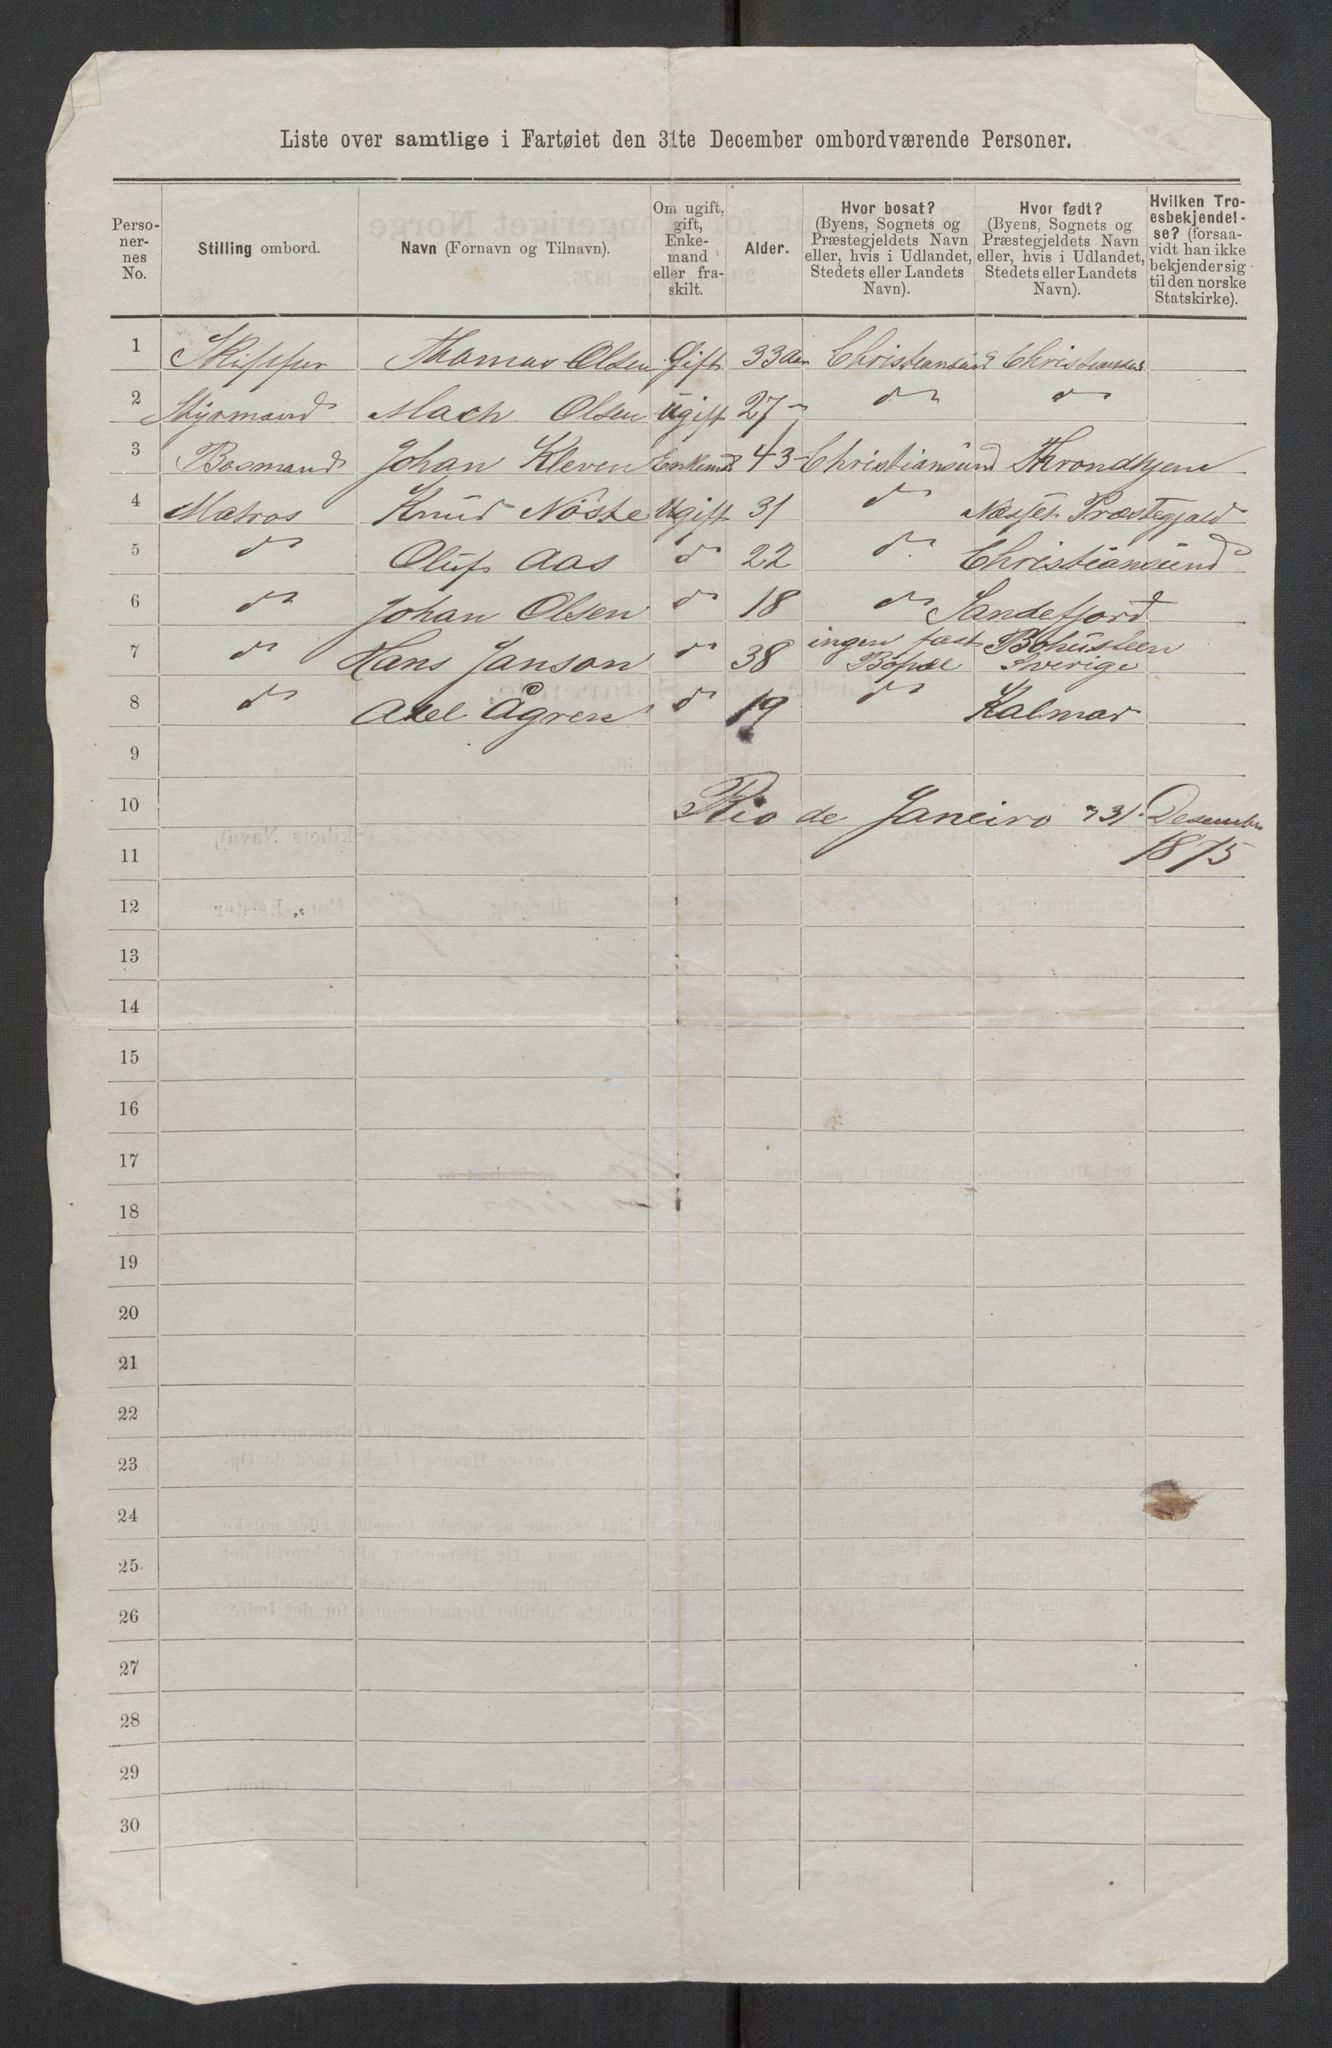 Liste over samtlige i Fartøiet den 31te December ombordværende Personer.
Personernes No. | Stilling ombord. | Navn (Fornavn og Tilnavn). | Om ugift, gift, Enkemand eller fraskilt. | Alder. | Hvor bosat? (Byens, Sognets og Præstegjeldets Navn eller, hvis i Udlandet, Stedets eller Landets Navn). | Hvor født? (Byens, Sognets og Præstegjeldets Navn eller, hvis i Udlandet, Stedets eller Landets Navn). | Hvilken Troesbekjendelse? (forsaavidt han ikke bekjender sig til den norske Statskirke).
1 Skipper Thomas Olsen Gift 33 Aar Christiansund Christiansund
2 Styrmand Mach Olsen Ugift 27 - do do
3 Bosmand Johan Kleven Enkemd 43 - Christiansund Throndhjem
4 Matros Knud Nöste Ugift 31 do Nesset Præstegjald
5 do Oluf Aas do 22 do Christiansund
6 do Johan Olsen do 18 do Sandefjord
7 do Hans Janson do 38 ingen fast Bopæl Bohusleen Sverige
8 do Axel Ågren do 19 do Kalmar
9
10 Rio de Janeiro 31 Desember
11 1875
12
13
14
15
16
17
18
19
20
21
22
23
24
25
26
27
28
29
30